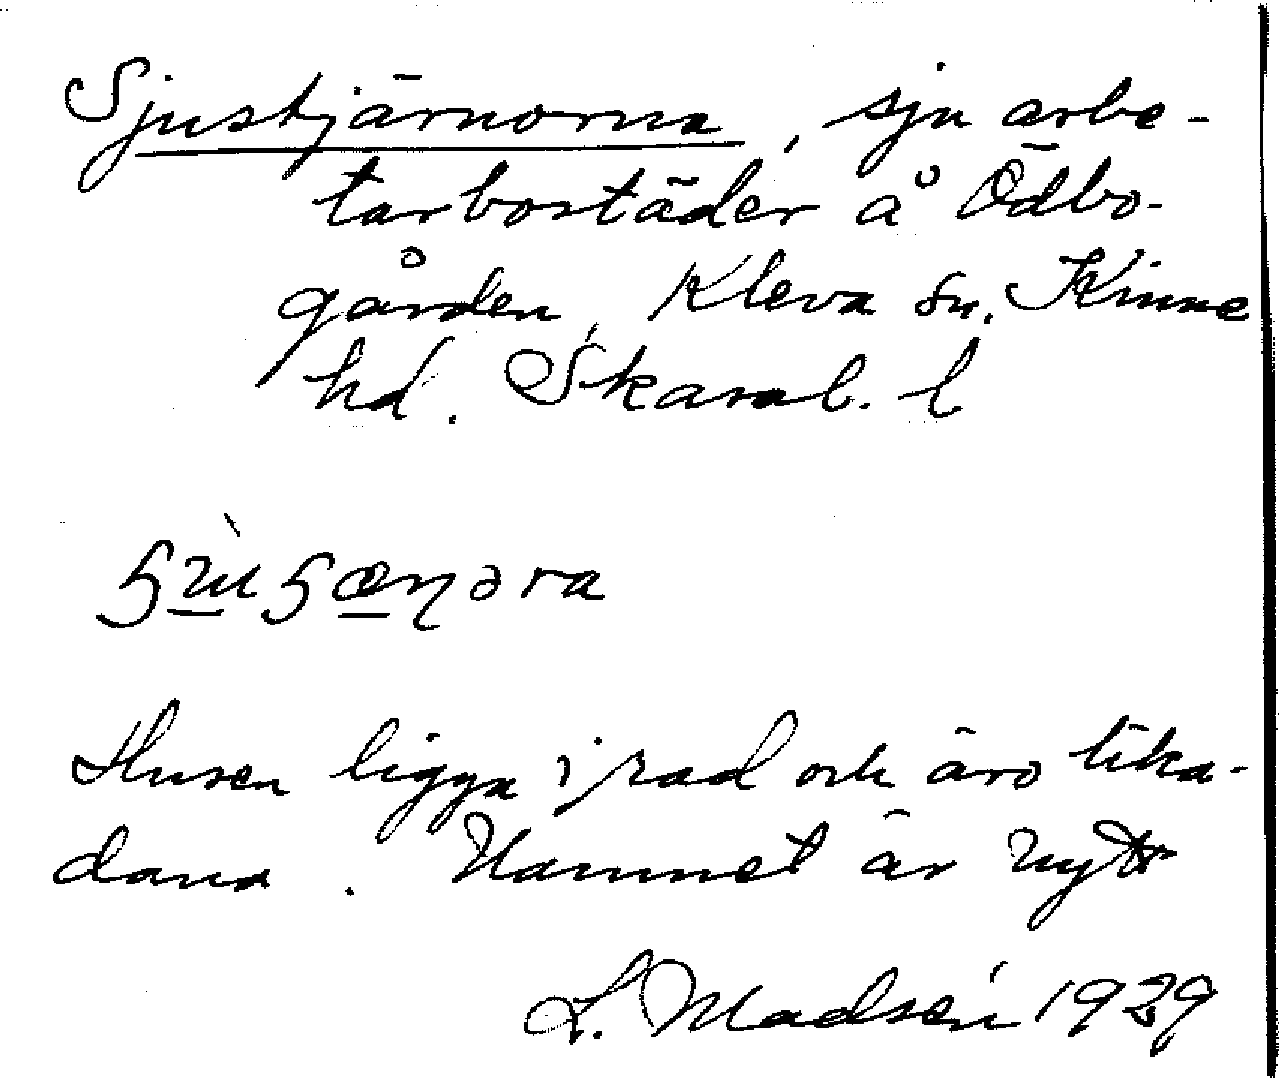 Sjustjärnorna, sju arbe-
tarbostäder å Ödbo-
gården, Kleva sn. Kinne
hd. Skarab. l
Husen ligga i rad och äro lika-
dana. Namnet är nytt
L. Madsén 1929